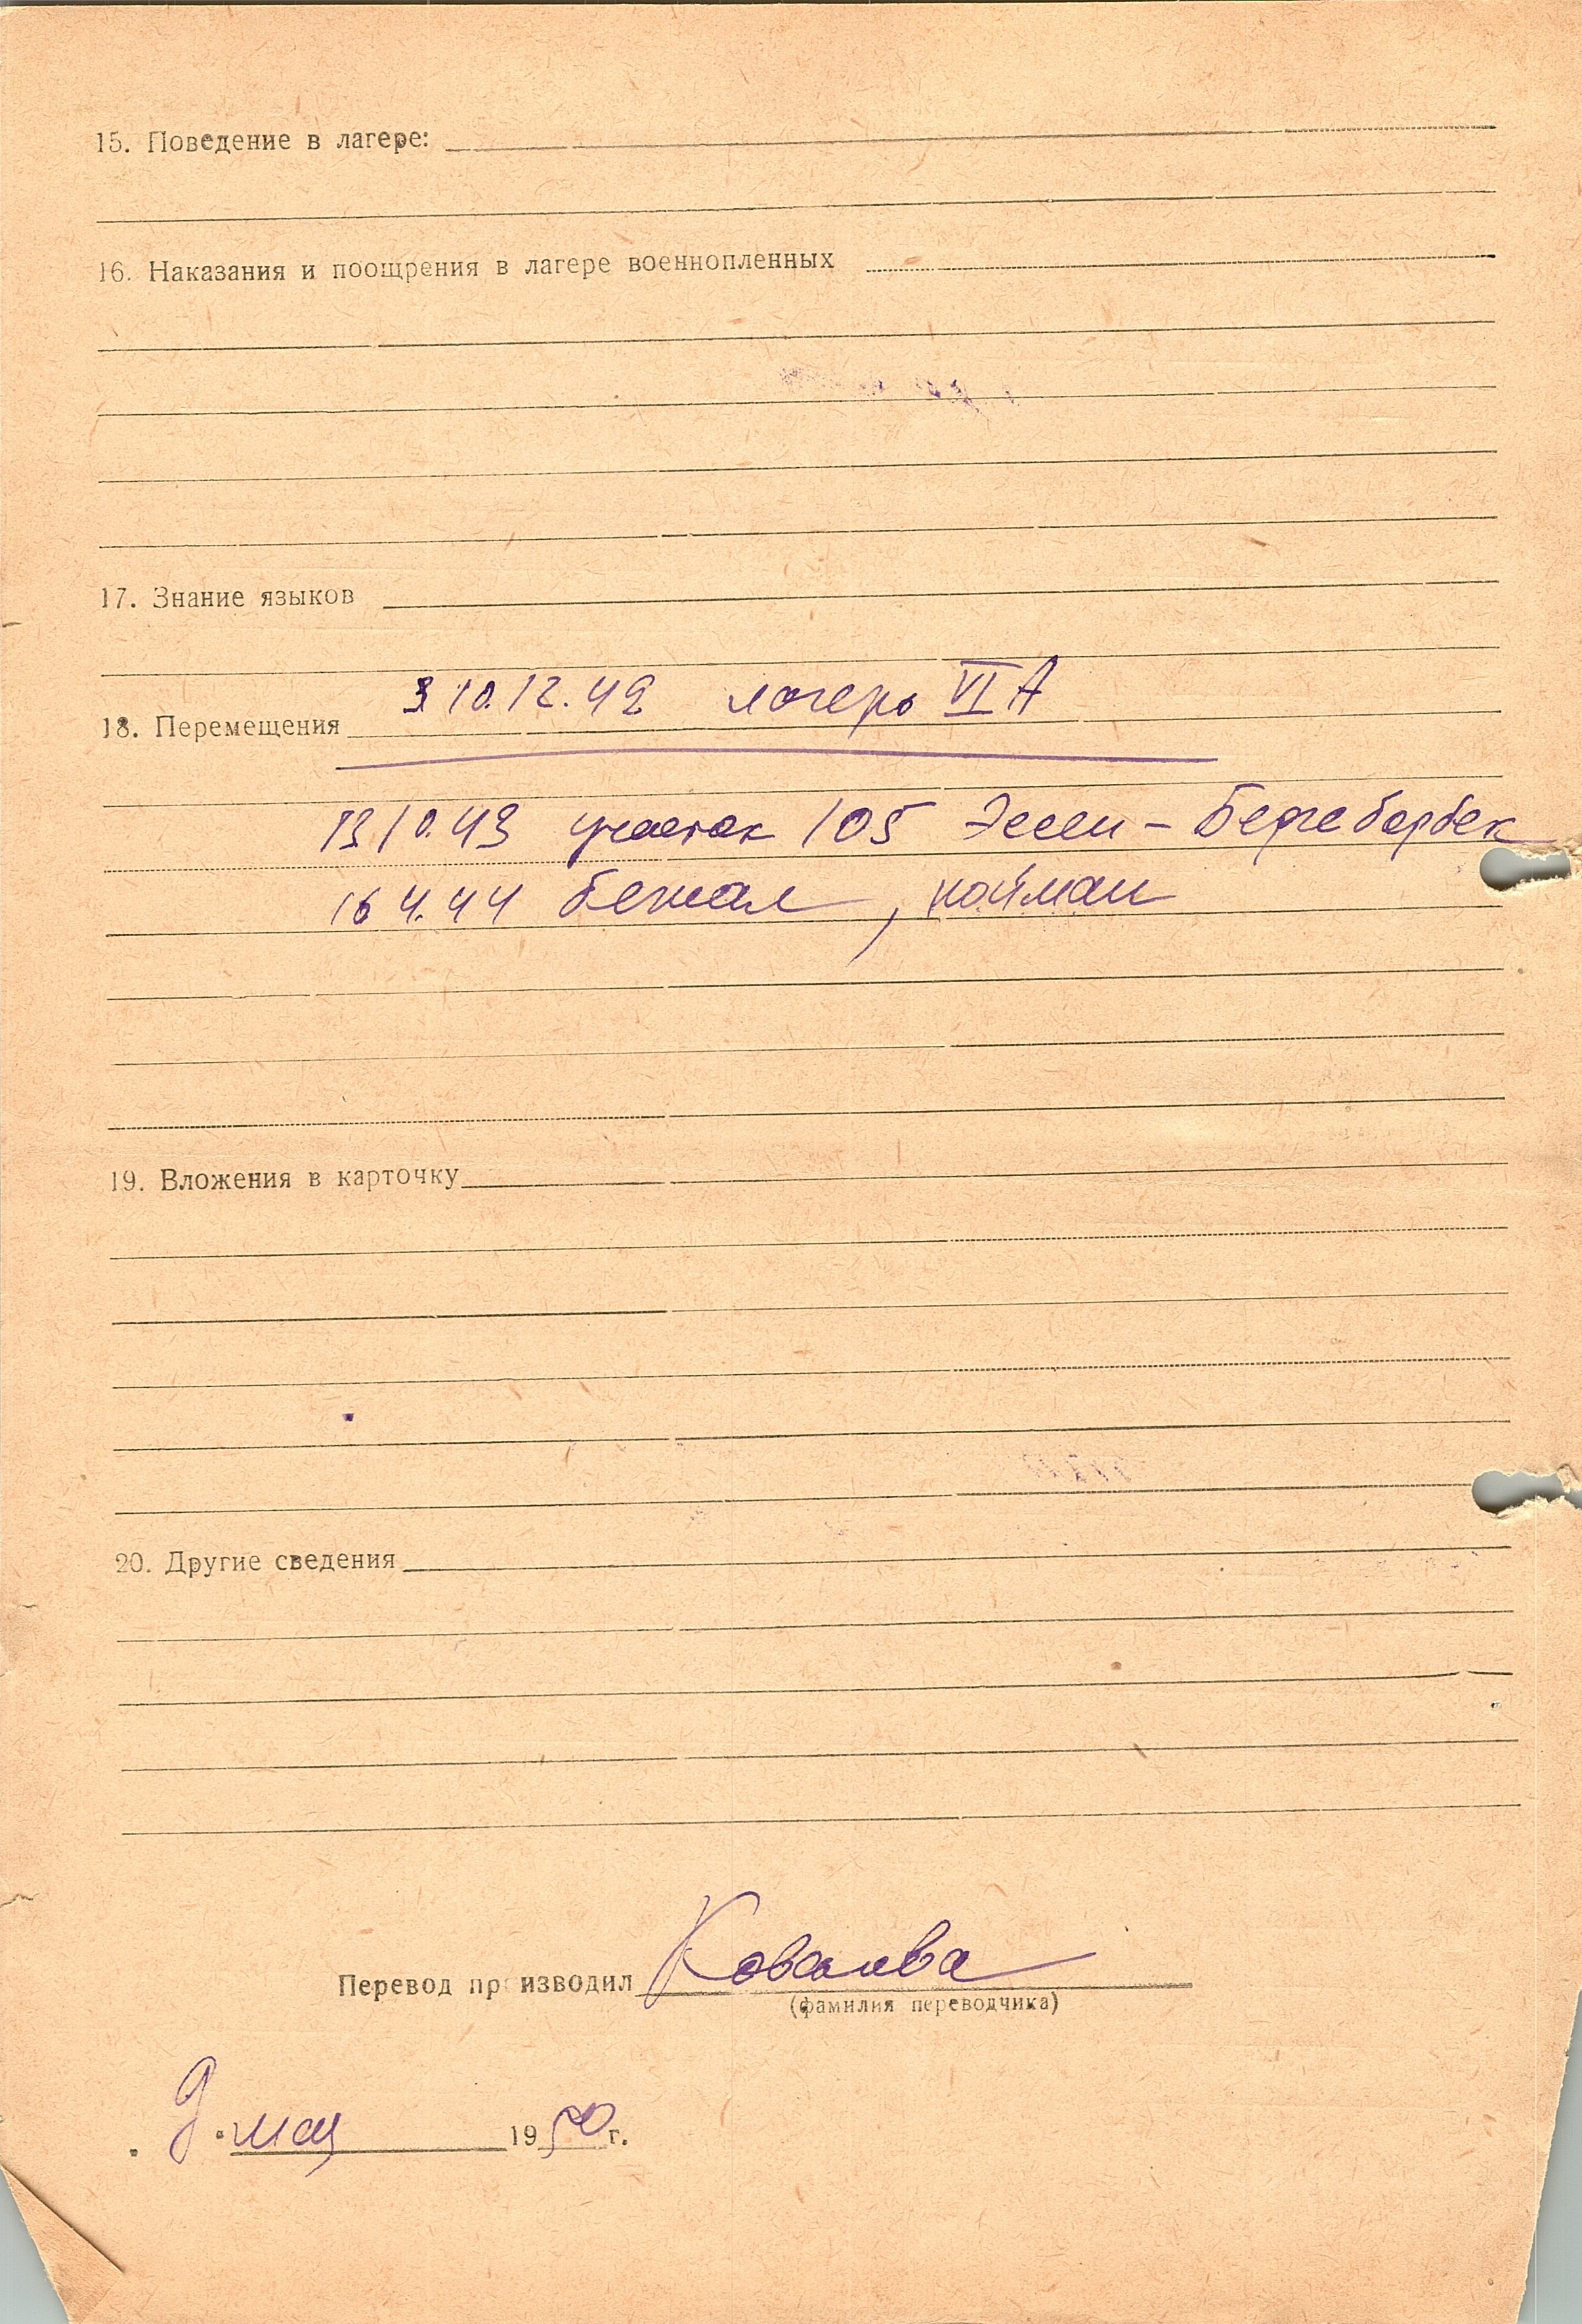 15. Поведение в лагере:
16. Наказания и поощрения в лагере военнопленных
17. Знание языков
18. Перемещения 10.12.42 лагерь VI A
13 10.43 участок 105 Эссен - Бергеборбек
16 4.44 бежал, пойман
19. Вложения в карточку
20. Другие сведения
Перевод производил Ковалева
(фамилия переводчика)
9 мая 1950 г.